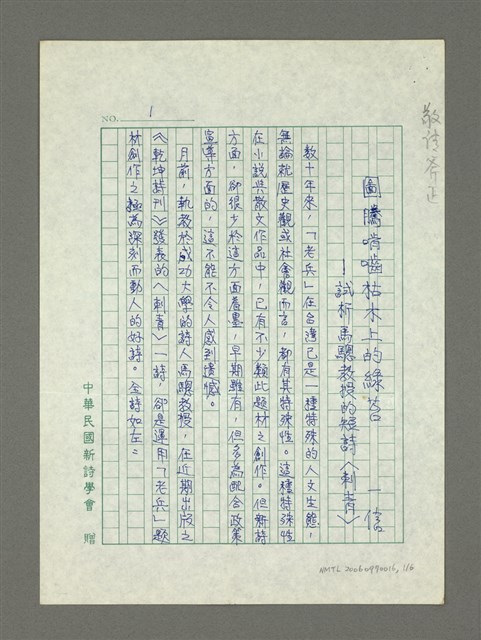 敬請斧正
圖騰啃嚙枯木上的綠苔
一信
—試析馬驄教授的短詩〈刺青〉
數十年來，「老兵」在台灣已是一種特殊的人文生態，
無論就歷史觀或社會觀而言，都有其特殊性。這種特殊性
在小說與散文作品中，已有不少類此題材之創作。但新詩
方面，卻很少於這方面着墨，早期雖有，但多為配合政策
宣導方面的，這不能不令人感到憾。
月前，執教於成功大學的詩人馬驄教授，在近期出版之
《乾坤詩刊》發表的〈刺青〉一詩，卻是運用「老兵」題
材創作之極為深刻而動人的好詩。全詩如左：
中華民國新詩學會 贈
NO. 1
NMTL 20060490016, 1/8